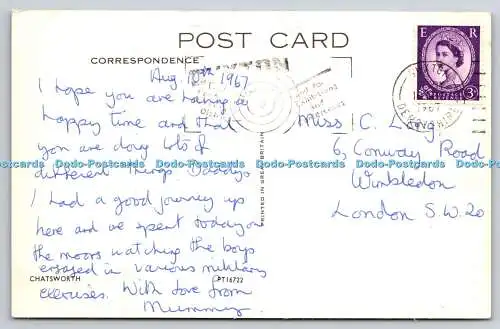 POST CARD
CORRESPONDENCE
BUXTON
Aug 10th 1967
I hope you are having a
happy time and that
you are doing lots of
different things. Daddy &
I had a good journey up
here and we spent today on
the moors watching the boys
engaged in various military
exercises. With love from
Mummy
CHATSWORTH
PT16722
PRINTED IN GREAT BRITAIN
Miss C. Long
6, Conway Road
Wimbledon
London S.W.20
E R
POSTAGE REVENUE
3D
1967
DERBYSHIRE
Dodo-Postcards Dodo-Postcards Dodo-Postcards Dodo-Postcards Dodo-Postcards